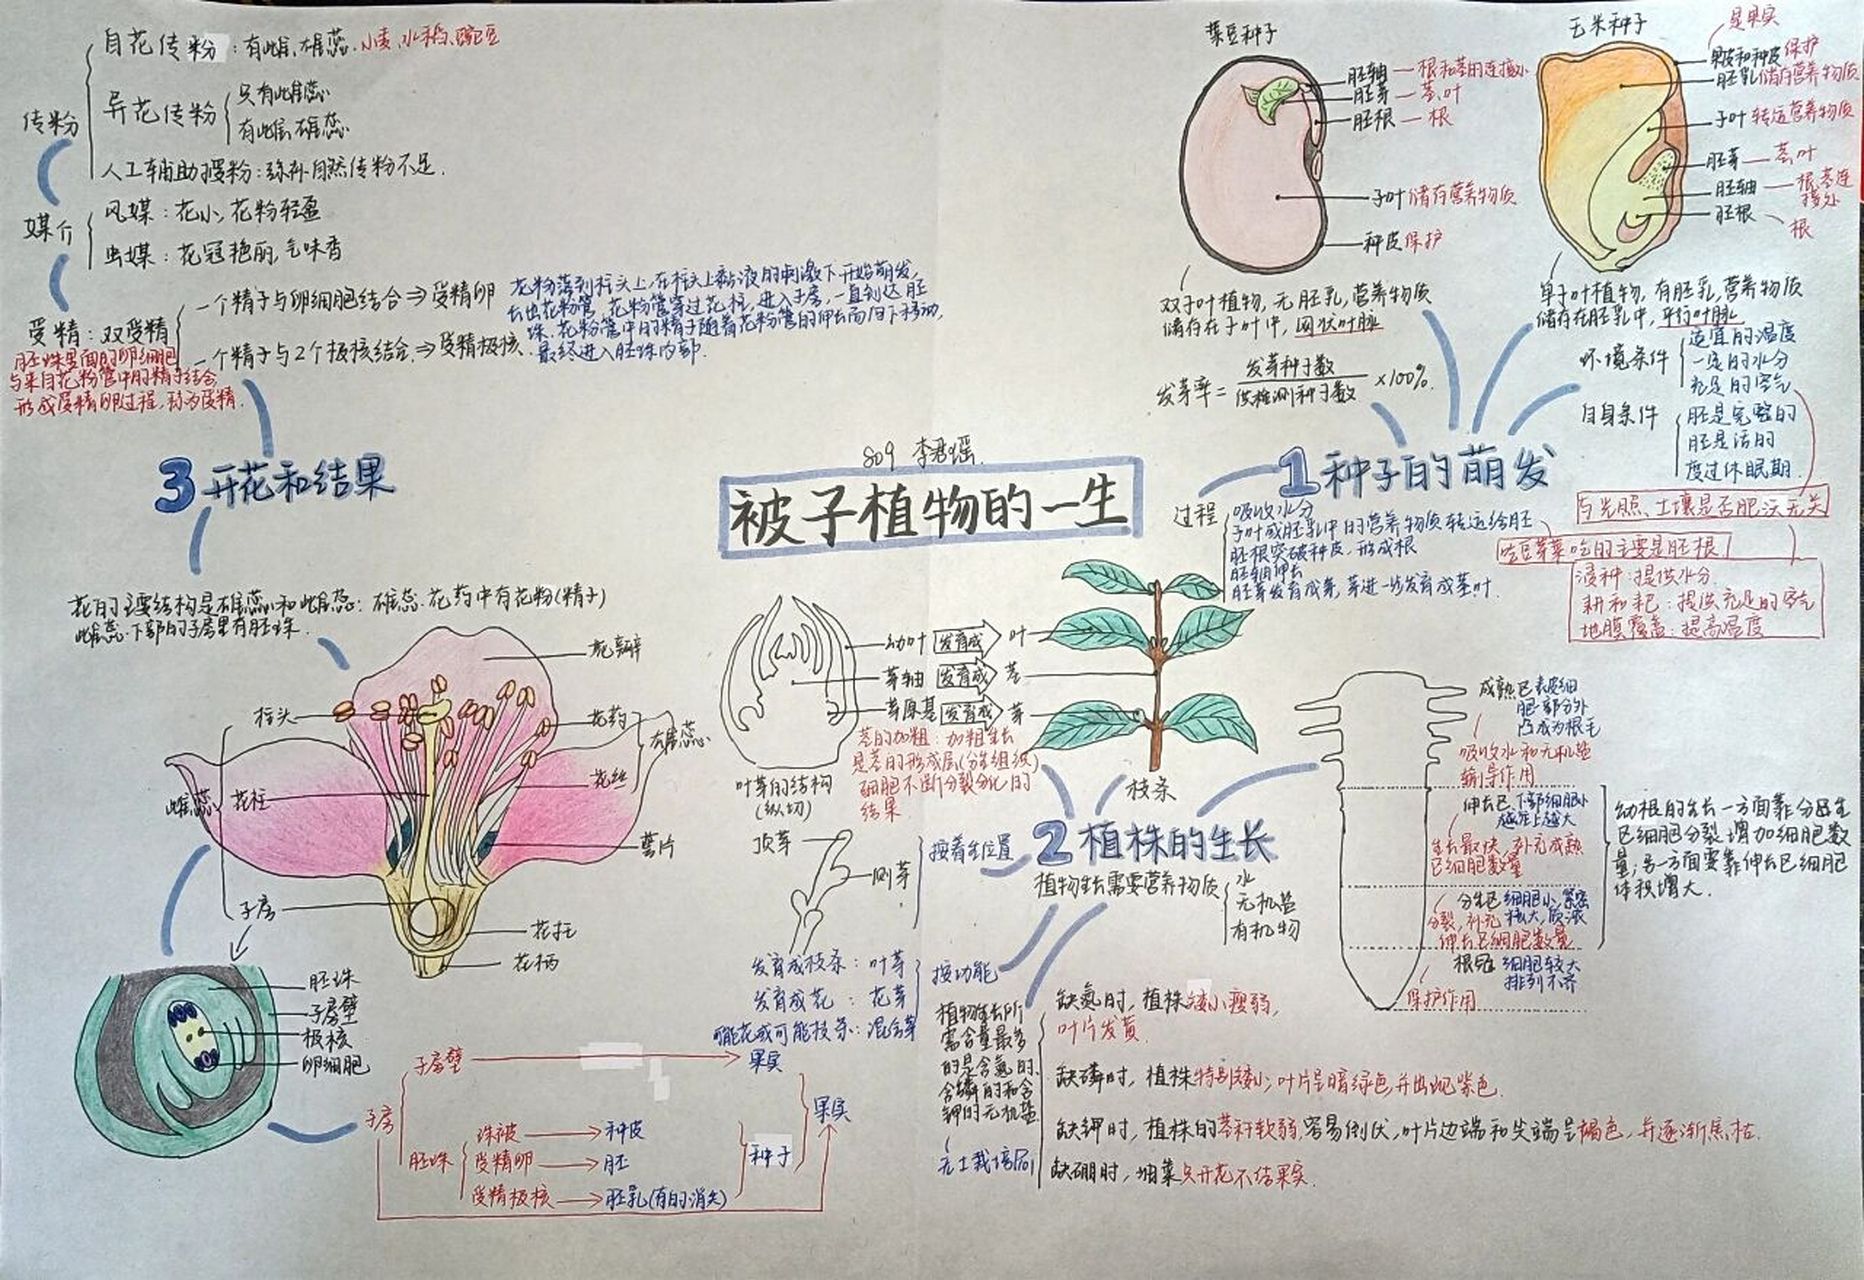 809 李君瑶
被子植物的一生
1 种子的萌发
菜豆种子
胚轴—根和茎的连接处
胚芽—茎、叶
胚根—根
子叶 储存营养物质
种皮 保护
双子叶植物,无胚乳,营养物质
储存在子叶中,网状叶脉
玉米种子
是果实
果皮和种皮 保护
胚乳 储存营养物质
子叶 转运营养物质
胚芽—茎叶
胚轴—根茎连
接处
胚根
根
单子叶植物,有胚乳,营养物质
储存在胚乳中,平行叶脉
发芽率=发芽种子数/供检测种子数×100%
环境条件
适宜的温度
一定的水分
充足的空气
自身条件
胚是完整的
胚是活的
度过休眠期
与光照、土壤是否肥沃无关
过程
吸收水分
子叶或胚乳中的营养物质转运给胚
胚根突破种皮,形成根
胚轴伸长
胚芽发育成芽,芽进一步发育成茎叶.
吃豆芽菜吃的主要是胚根!
浸种:提供水分
耕和耙:提供充足的空气
地膜覆盖:提高温度
2 植株的生长
幼叶 发育成 叶
芽轴 发育成 茎
芽原基 发育成 芽
叶芽的结构
(纵切)
枝条
茎的加粗:加粗生长
是茎的形成层(分生组织)
细胞不断分裂分化的
结果
顶芽
侧芽
按着生位置
发育成枝条:叶芽
发育成花:花芽
可能花或可能枝条:混合芽
按功能
植物生长需要营养物质
水
无机盐
有机物
成熟区 表皮细
胞一部分外
凸成为根毛
吸收水和无机盐
输导作用
伸长区 下部细胞小
越往上越大
生长最快,补充成熟
区细胞数量
分生区 细胞小,紧密
分裂,补充 核大,质浓
伸长区细胞数量
根冠 细胞较大
排列不齐
保护作用
幼根的生长一方面靠分生
区细胞分裂增加细胞数
量;另一方面要靠伸长区细胞
体积增大.
植物生长所
需含量最多
的是含氮的、
含磷的和含
钾的无机盐
无土栽培
缺氮时,植株矮小瘦弱,
叶片发黄.
缺磷时,植株特别矮小;叶片呈暗绿色,并出现紫色.
缺钾时,植株的茎秆软弱,容易倒伏,叶片边端和尖端呈褐色,并逐渐焦枯.
缺硼时,油菜只开花不结果实.
3 开花和结果
传粉
自花传粉:有雌、雄蕊.小麦、水稻、豌豆
异花传粉
只有此雌蕊
有雌、雄蕊
人工辅助授粉:弥补自然传粉不足.
媒介
风媒:花小,花粉轻盈
虫媒:花冠艳丽,气味香
受精:双受精
一个精子与卵细胞结合⇒受精卵
一个精子与2个极核结合⇒受精极核
花粉落到柱头上,在柱头上黏液的刺激下开始萌发,
长出花粉管.花粉管穿过花柱,进入子房,一直到达胚
珠.花粉管中的精子随着花粉管的伸长而向下移动,
最终进入胚珠内部.
胚珠里面的卵细胞
与来自花粉管中的精子结合,
形成受精卵过程,称为受精.
花的主要结构是雄蕊和雌蕊:雄蕊.花药中有花粉(精子)
雌蕊.下部的子房里有胚珠.
花瓣
柱头
花药
雄蕊
花丝
雌蕊
花柱
萼片
子房
花托
花柄
胚珠
子房壁
极核
卵细胞
子房
子房壁→果实
胚珠
珠被→种皮
受精卵→胚
受精极核→胚乳(有的消失)
种子
果实